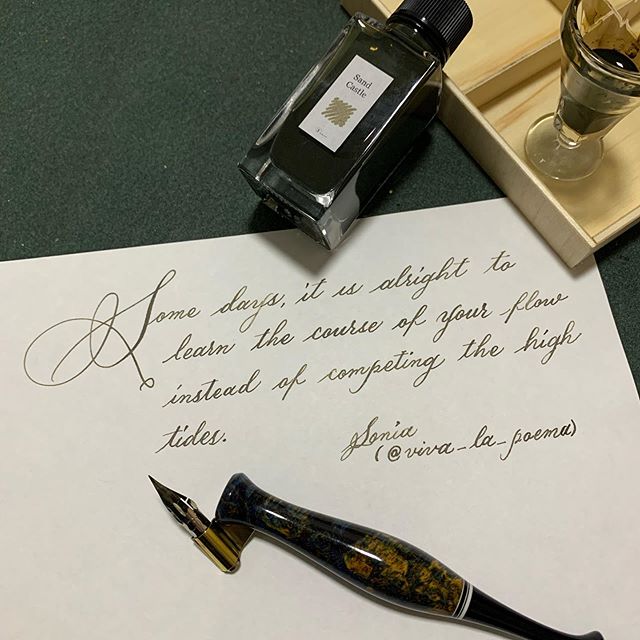 Sand
Castle
Some days, it is alright to
learn the course of your flow
instead of competing the high
tides.
Sonia
(@viva_la_poema)